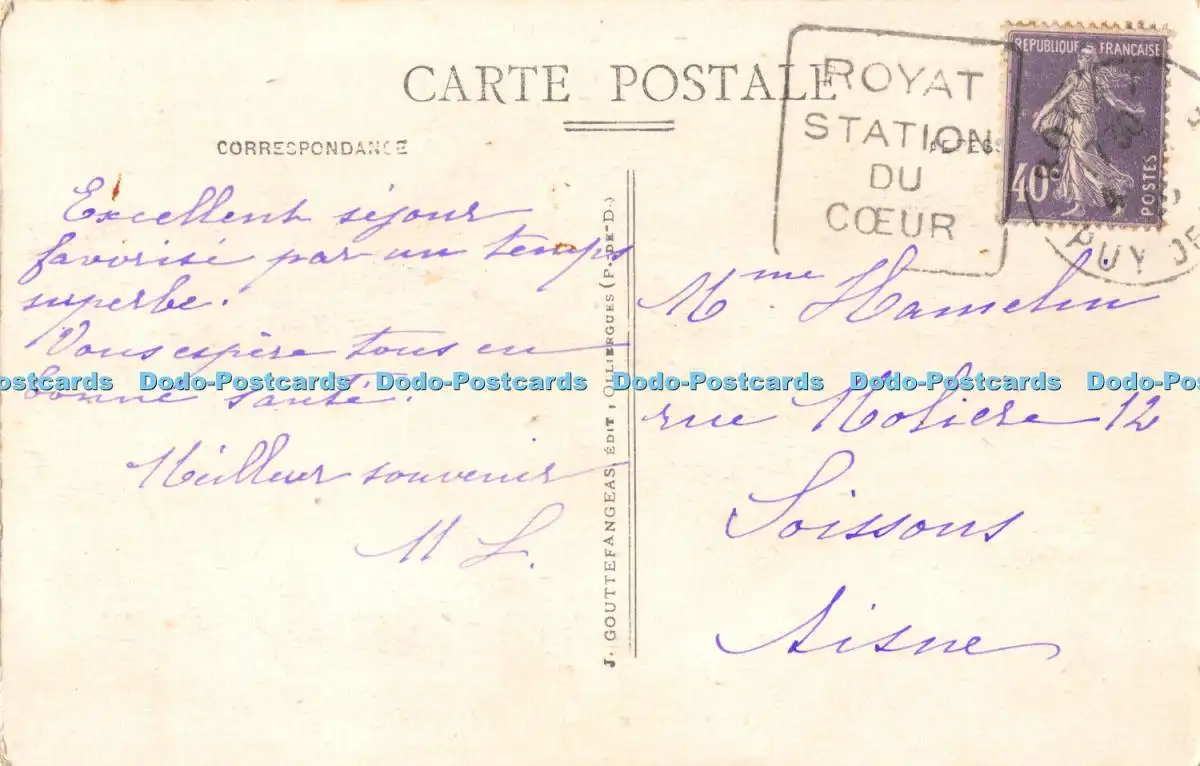 CARTE POSTALE
CORRESPONDANCE
ROYAT
STATION
DU
CŒUR
REPUBLIQUE FRANÇAISE
40
POSTES
PUY DE
Excellent séjour
favorisé par un temps
superbe.
Vous espère tous en
bonne santé.
Meilleur souvenir
M L.
J. GOUTTEFANGEAS, ÉDIT, OLLIERGUES (P.-DE-D.)
Mme Hamelin
rue Molière 12
Soissons
Aisne
Dodo-Postcards Dodo-Postcards Dodo-Postcards Dodo-Postcards Dodo-Postcards